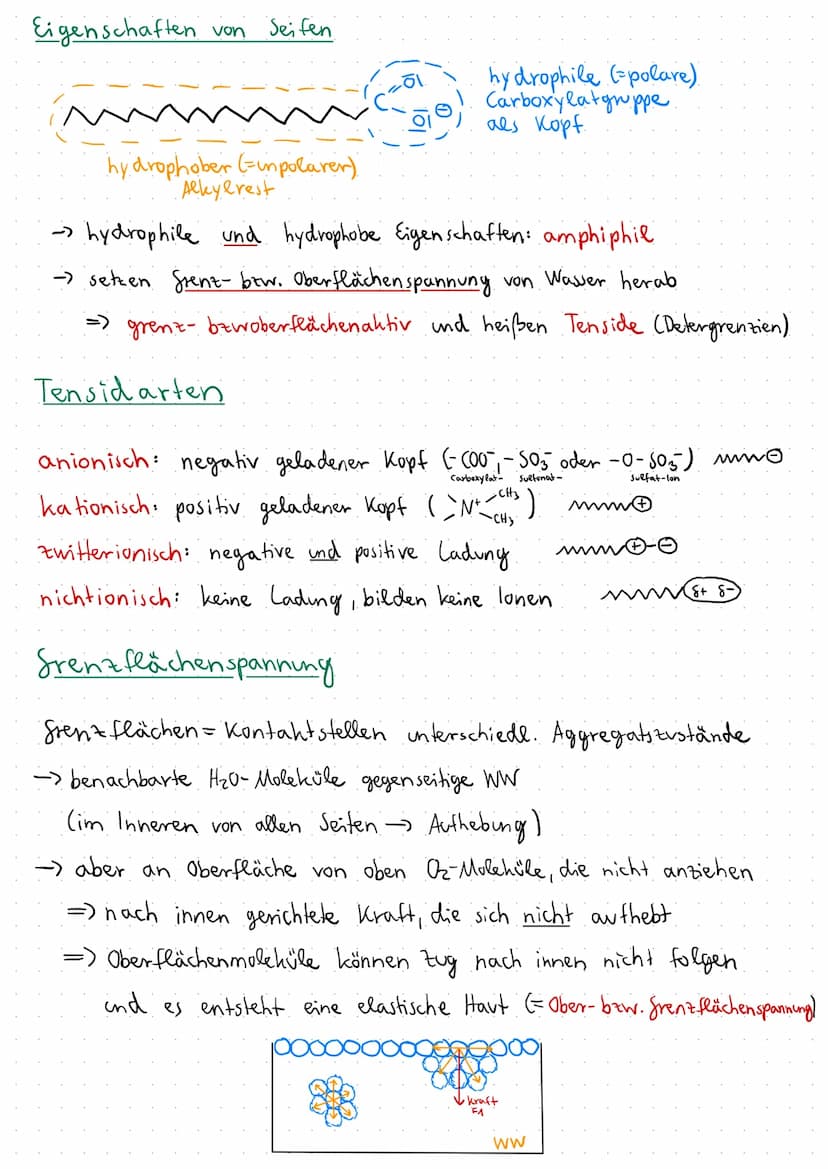 Eigenschaften von Seifen
C
O
O
⊖
hydrophile (=polare)
Carboxylatgruppe
als Kopf
hydrophober (=unpolarer)
Alkylrest
→ hydrophile und hydrophobe Eigenschaften: amphiphil
→ setzen Grenz- bzw. Oberflächenspannung von Wasser herab
⇒ grenz- bzw oberflächenaktiv und heißen Tenside (Detergrenzien)
Tensidarten
anionisch: negativ geladener Kopf (-COO⁻, -SO₃⁻ oder -O-SO₃⁻) ⊖
Carboxylat- Sulfonat- Sulfat-Ion
kationisch: positiv geladener Kopf (N⁺ CH₃ CH₃) ⊕
zwitterionisch: negative und positive Ladung ⊕-⊖
nichtionisch: keine Ladung, bilden keine Ionen δ+ δ-
Grenzflächenspannung
Grenzflächen = Kontaktstellen unterschiedl. Aggregatszustände
→ benachbarte H₂O-Moleküle gegenseitige WW
(im Inneren von allen Seiten → Aufhebung)
→ aber an Oberfläche von oben O₂-Moleküle, die nicht anziehen
⇒ nach innen gerichtete Kraft, die sich nicht aufhebt
⇒ Oberflächenmoleküle können Zug nach innen nicht folgen
und es entsteht eine elastische Haut (= Ober- bzw. Grenzflächenspannung)
Kraft
F1
WW